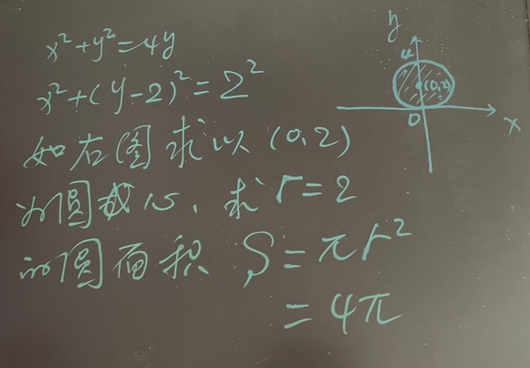 x²+y²=4y
x²+(y-2)²=2²
如右图求以(0,2)
为圆心,求r=2
的圆面积 S=πr²
=4π
y
4
(0,2)
0
x